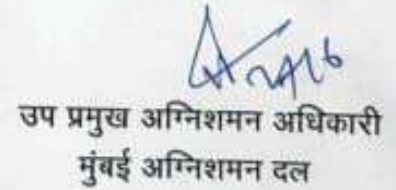 उप प्रमुख अग्निशमन अधिकारी
मुंबई अग्निशमन दल